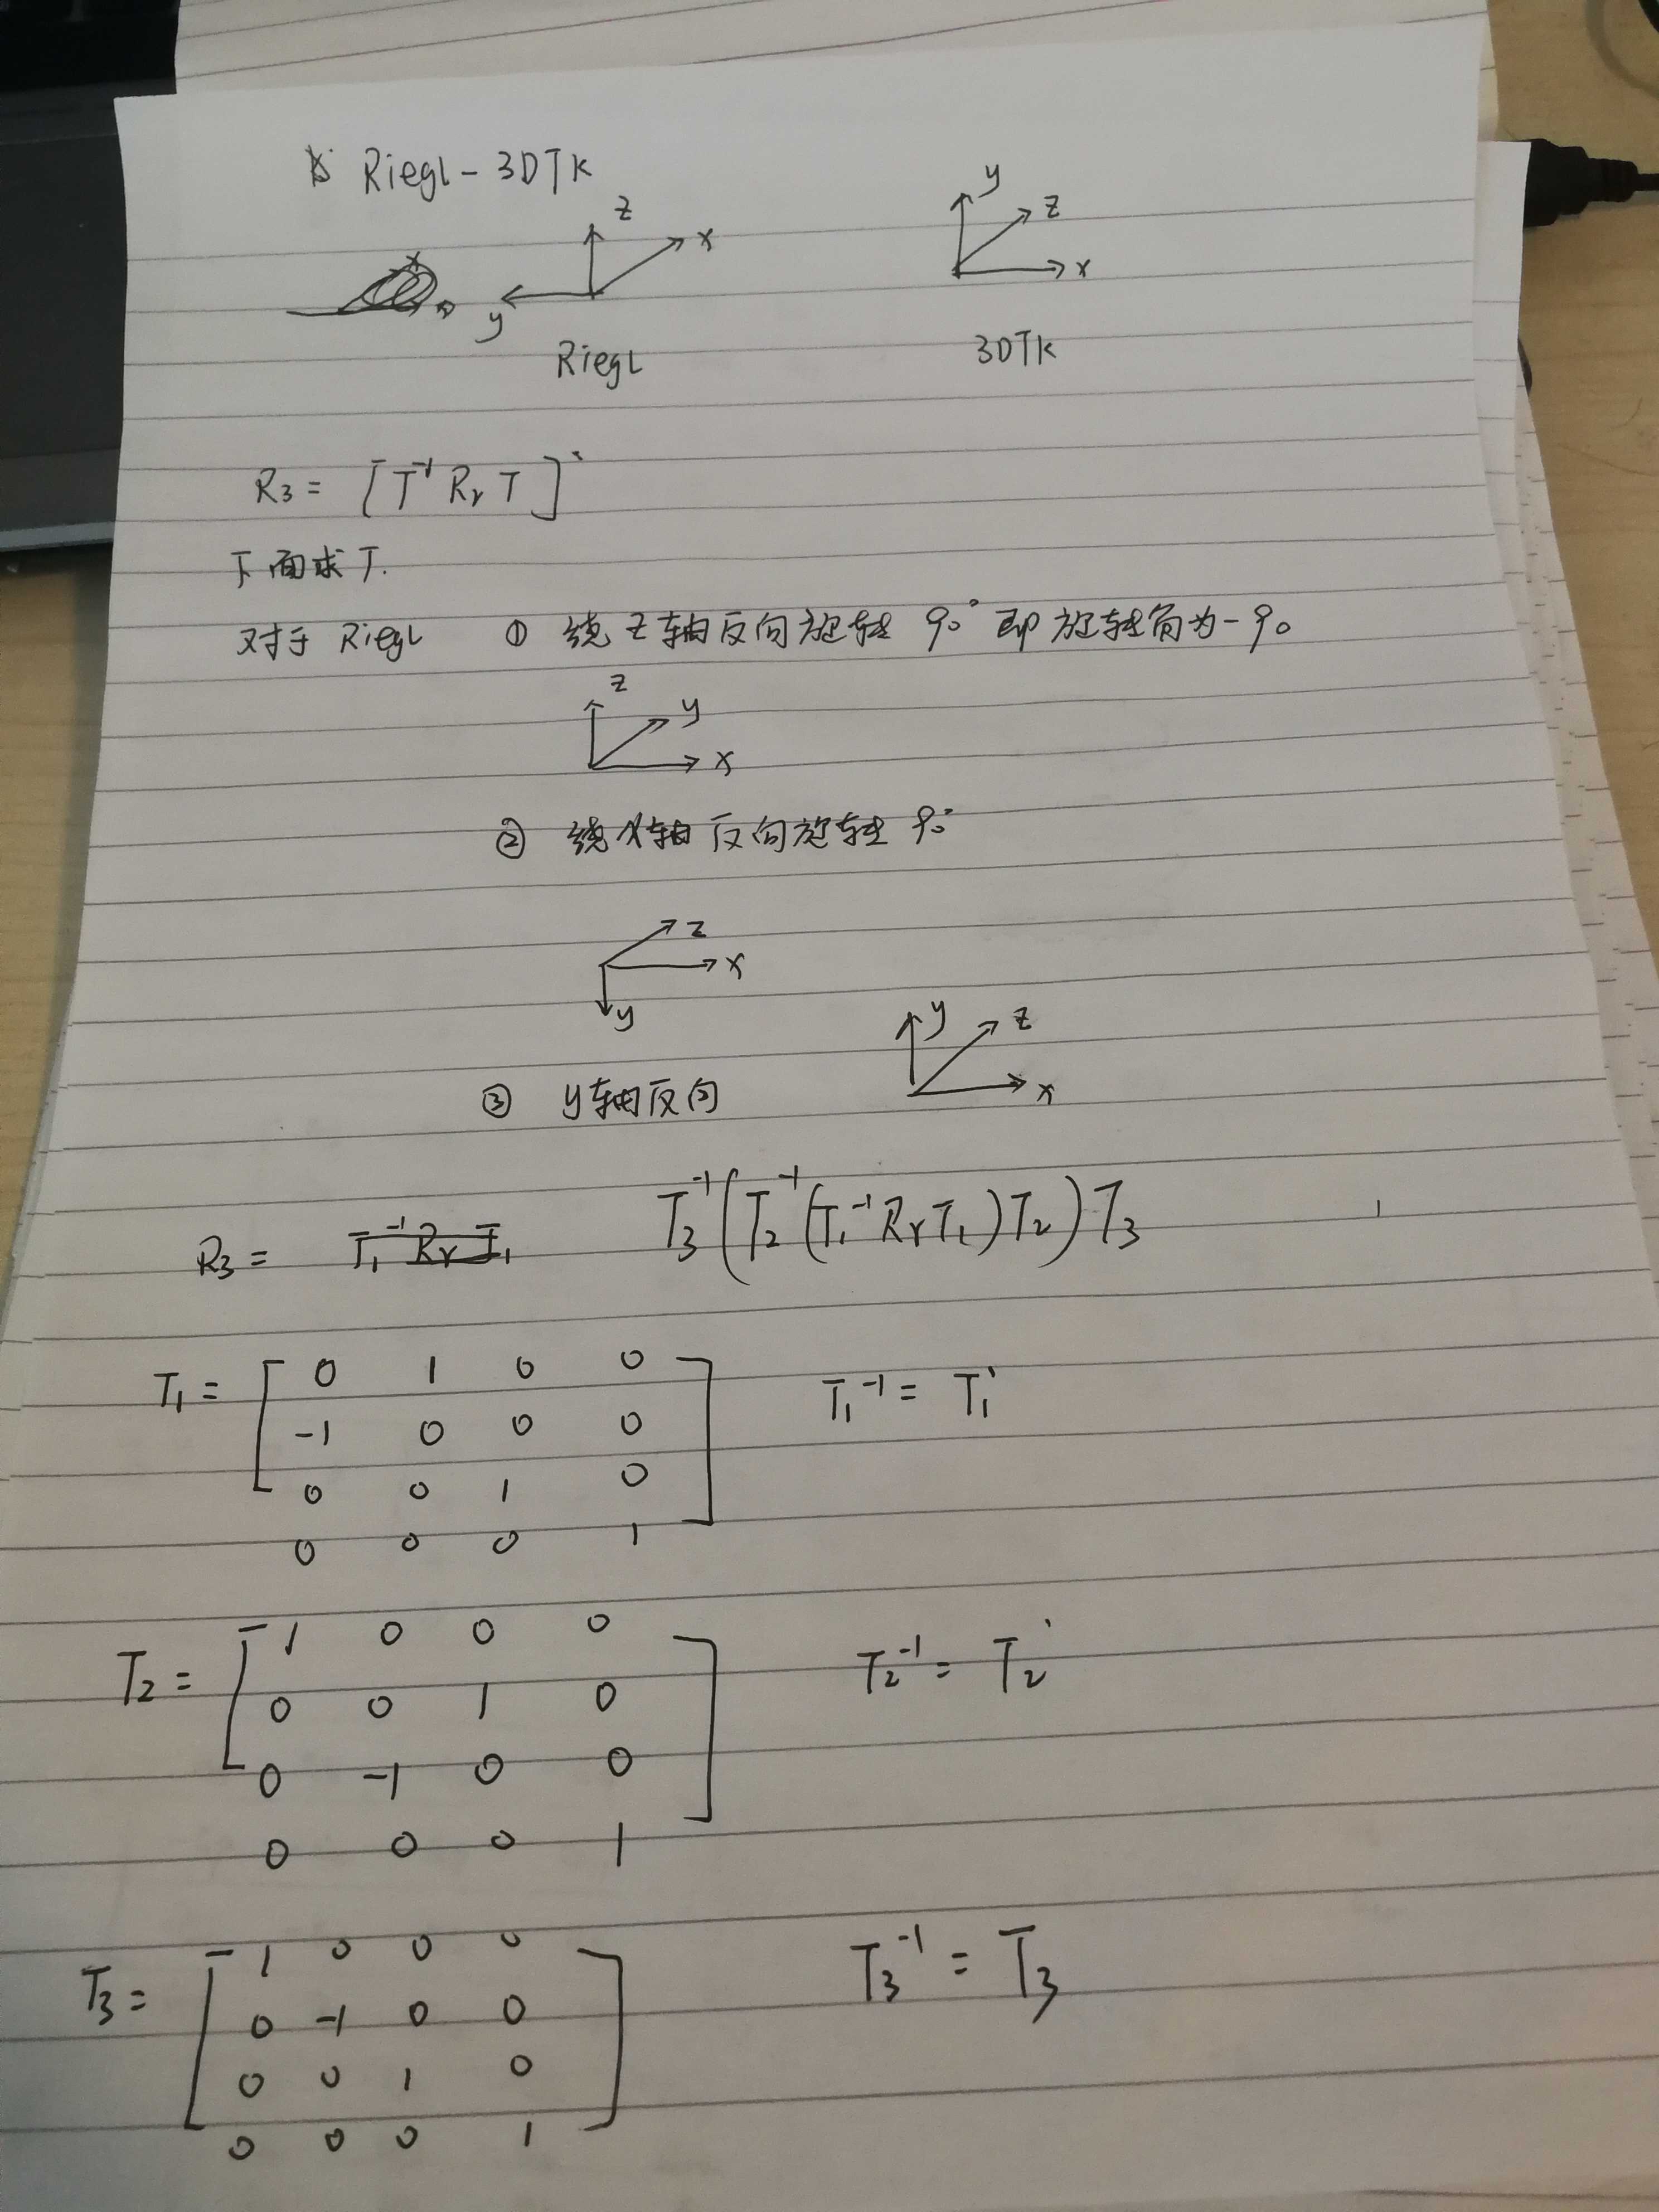 Riegl - 3DTK
z
x
y
Riegl
y
z
x
3DTK
R₃ = [T⁻¹ Rᵣ T]'
下面求T.
对于 Riegl ① 绕 z 轴反向旋转 90° 即旋转角为-90
z
y
x
② 绕x轴反向旋转 90°
z
x
y
③ y轴反向
y
z
x
R₃ = T₁⁻¹ Rᵣ T₁ T₃⁻¹(T₂⁻¹(T₁⁻¹RᵣT₁)T₂)T₃
T₁ = [ 0 1 0 0
-1 0 0 0
0 0 1 0
0 0 0 1 ]
T₁⁻¹ = T₁'
T₂ = [ 1 0 0 0
0 0 1 0
0 -1 0 0
0 0 0 1 ]
T₂⁻¹ = T₂'
T₃ = [ 1 0 0 0
0 -1 0 0
0 0 1 0
0 0 0 1 ]
T₃⁻¹ = T₃